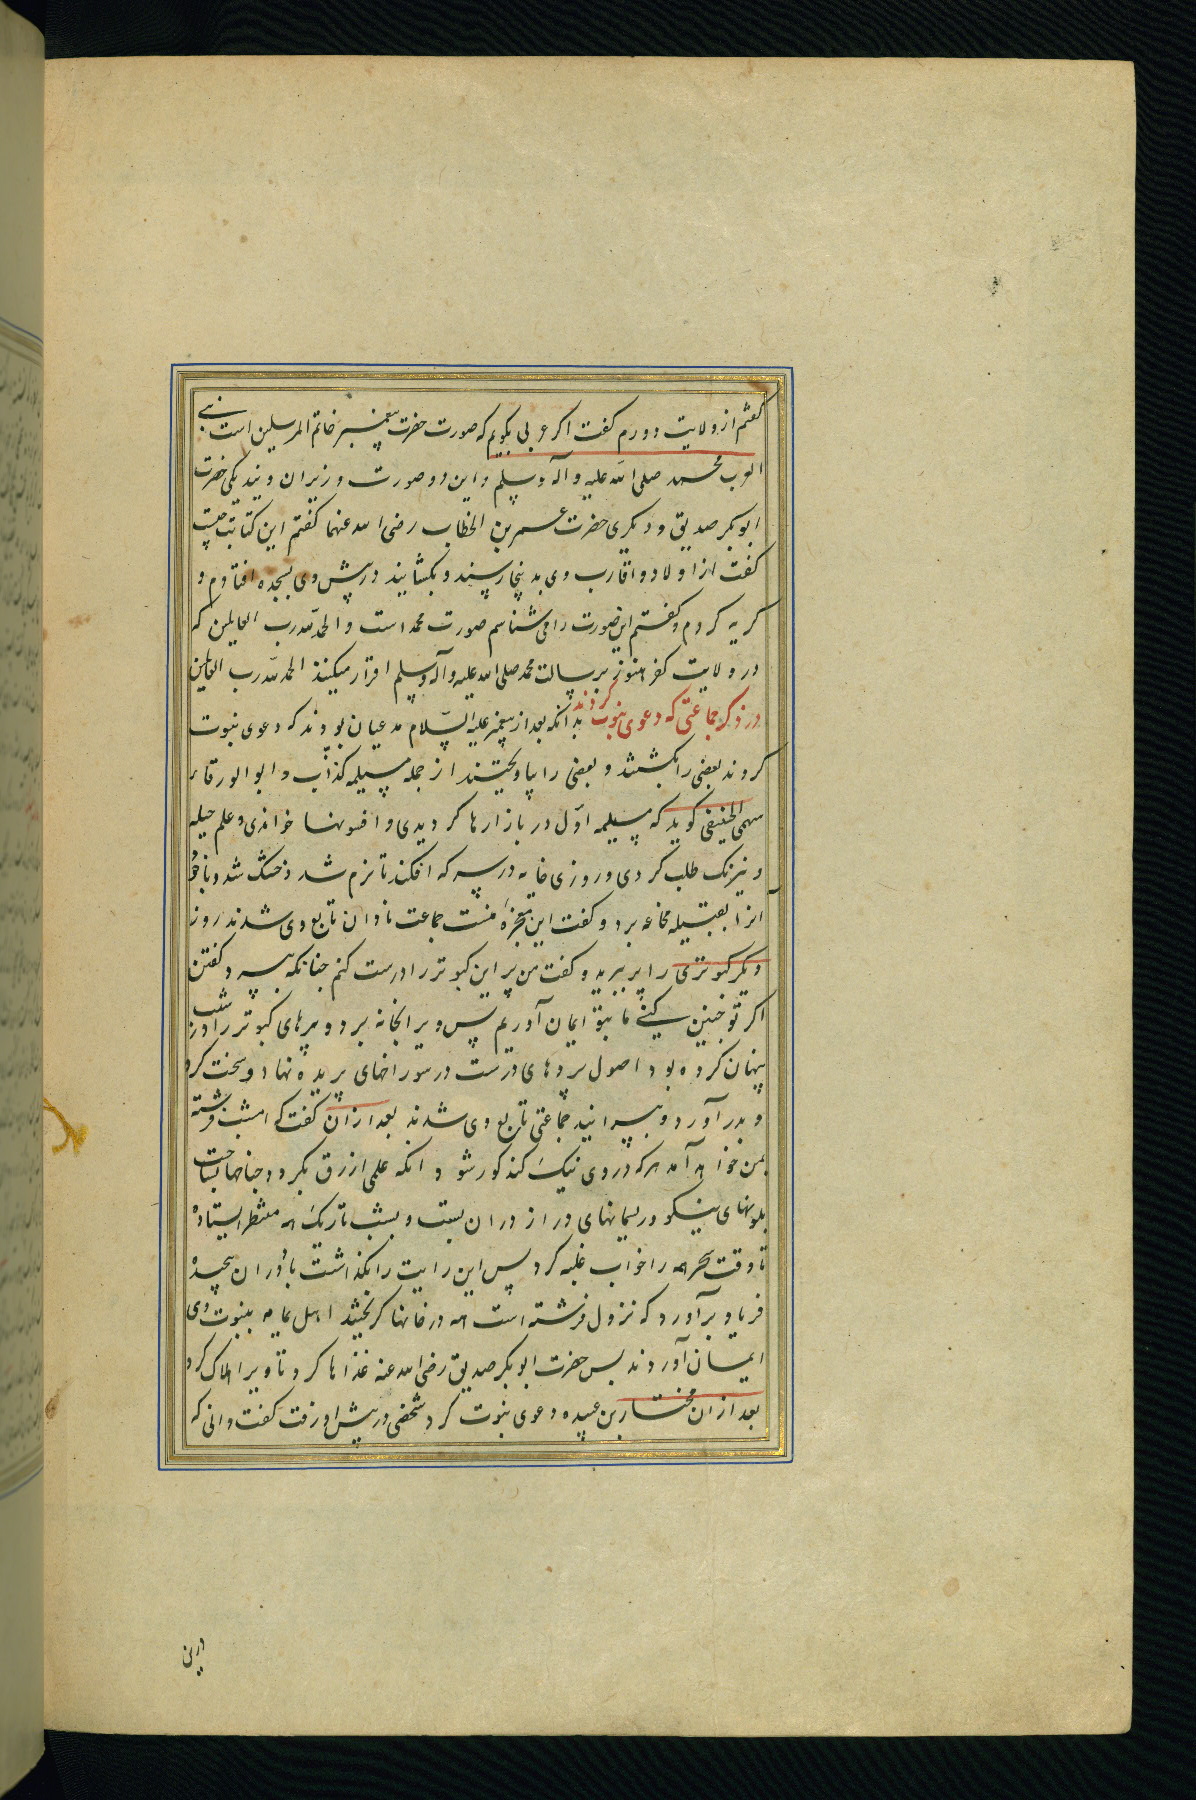 گفتم از ولایت دورم گفت اگر عربی بگویم که صورت حضرت پیغمبر خاتم المرسلین است نبی
العرب محمد صلی الله علیه وآله وسلم و این دو صورت وزیران ویند یکی حضرت
ابوبکر صدیق و دیگری حضرت عمر بن الخطاب رضی الله عنهما گفتم این کتابت چیست
گفت از اولاد و اقارب وی بدینجا رسیند و بکشایند در پیش وی بسجده افتادم و
گریه کردم و گفتم این صورت را می شناسم صورت محمد است و الحمد لله رب العالمین که
در ولایت کفر هنوز برسالت محمد صلی الله علیه وآله وسلم اقرار میکنند الحمد لله رب العالمین
در ذکر جماعتی که دعوی نبوت کردند بدانکه بعد از پیغمبر علیه السلام مدعیان بودند که دعوی نبوت
کردند بعضی را بکشتند و بعضی را بیاویختند از جمله مسیلمه کذاب و ابو الورقاء
سهمی الحنیفی گوید که مسیلمه اول در بازارها گردیدی و افسونها خواندی و علم حیله
و نیرنگ طلب کردی و روزی خایه در سرکه افکند تا نرم شد و خشک شد و با خود
آنرا بقبیله مجاعه برد و گفت این معجزه منست جماعت نادان تابع وی شدند روز
دیگر کبوتری را پر ببرید و گفت من پر این کبوتر را درست کنم چنانکه بپرد گفتند
اگر تو چنین کنی ما بتو ایمان آوریم پس ویرا بخانه برد و پرهای کبوتر را در شب
پنهان کرده بود اصول پردهای درست در سوراخهای پر بریده نهاد و سخت کرد
و بدر آورد و بپرانید جماعتی تابع وی شدند بعد ازان گفت که امشب فرشته
بمن خواهد آمد هر که در وی نیک کند کور شود انکه علمی ازرق بکرد و جناحها بساخت
بلونهای نیکو و ریسمانهای دراز دران بست و بشب تاریک همه منتظر ایستاده
تا وقت سحر همه را خواب غلبه کرد پس این رایت را بگذاشت باد دران پیچید
فریاد برآورد که نزول فرشته است همه در خانها گریختند اهل یمامه بنبوت وی
ایمان آوردند پس حضرت ابوبکر صدیق رضی الله عنه غذاها کرد تا ویرا هلاک کرد
بعد ازان مختار بن عبیده دعوی نبوت کرد شخصی در پیش او رفت گفت دانی که